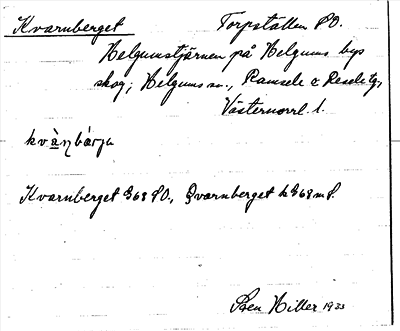 Kvarnberget Torpställen PO.
Helgumstjärnen på Helgums bys
skog, Helgums sn., Ramsele & Resele tg,
Västernorrl. l.
kvàɳbárju
Kvarnberget G68 PO., Qvarnberget h G68 m P.
Sven Hiller 1933